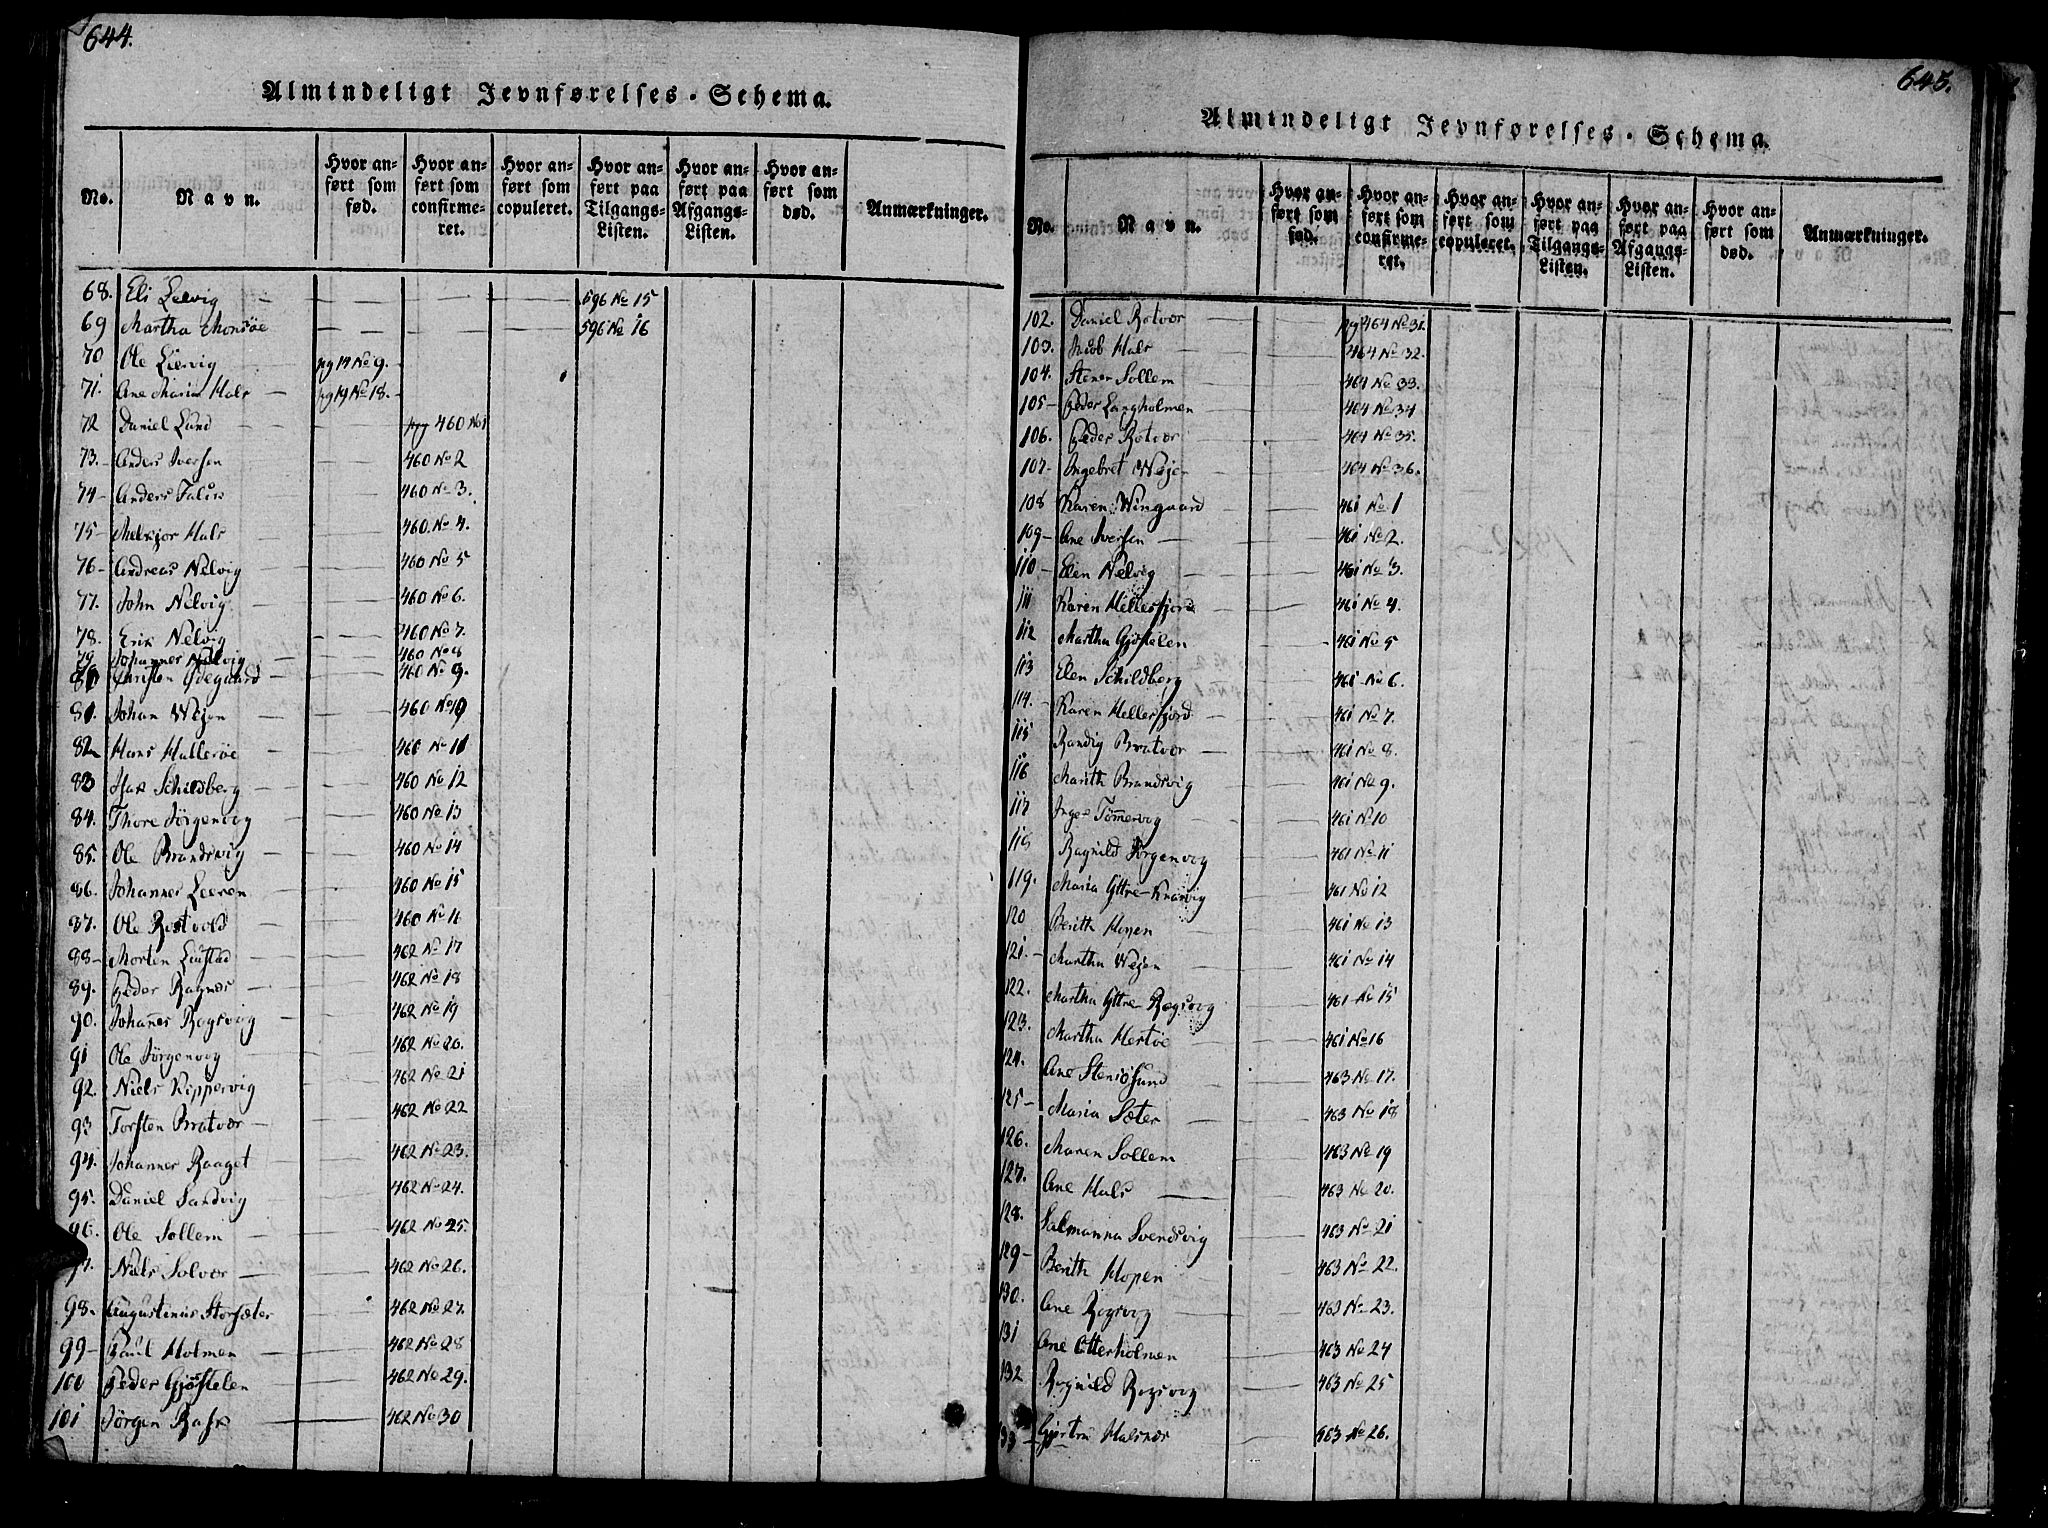 644.
Almindeligt Jevnførelses-Schema.
No. Navn. Hvor anført som fød. Hvor anført som confirmeret. Hvor anført som copuleret. Hvor anført paa Tilgangs-Listen. Hvor anført paa Afgangs-Listen. Hvor anført som død. Anmærkninger.
68. Eli Leervig 596 No 15
69 Martha Monsøe 596 No 16
70 Ole Leervig pg 14 No 9.
71. Ane Maria Hals pg 19 No 18.
72 Daniel Lund pag 460 No 1
73. Anders Iversen 460 No 2
74 Anders 460 No 3.
75 Melkior Hals 460 No 4.
76 Andreas Nelvig 460 No 5
77. John Nelvig 460 No 6.
78. Erik Nelvig 460 No 7.
79 Johannes Nelvig 460 No 8
80 Christen Ødegaard 460 No 9.
81. Johan Wejen 460 No 10
82 Hans Hallerøe 460 No 11
83 Isak Schildberg 460 No 12
84. Thore Jørgenvog 460 No 13
85. Ole Brandsvig 460 No 14
86. Johannes Leeren 460 No 15
87. Ole Rostvold 460 No 16
88 Morten Liustad 462 No 17
89. Peder Ragnes 462 No 18
90. Johañes Rogsvog 462 No 19
91 Ole Jørgenvog 462 No 20.
92. Niels Kippervig 462 No 21
93 Torsten Bratvær 462 No 22
94. Johannes Raaget 462 No 23.
95. Daniel Sandvig 462 No 24.
96. Ole Sollem 462 No 25.
97. Niels Solvær 462 No 26.
98. Augustinus Storsæter 462 No 27.
99 Paul Holmen 462 No 28
100 Peder Gjøstelen 462 No 29.
101 Jørgen 462 No 30
645.
Almindeligt Jevnførelses-Schema.
No. Navn. Hvor anført som fød. Hvor anført som confirmeret. Hvor anført som copuleret. Hvor anført paa Tilgangs-Listen. Hvor anført paa Afgangs-Listen. Hvor anført som død. Anmærkninger.
102. Daniel Rotvær pg 464 No 31.
103. Jacob Hals 464 No 32.
104. Stener Sollem 464 No 33.
105 Peder Langholmen 464 No 34
106. Peder Rotvær 464 No 35.
107 Ingebret Wejen 464 No 36.
108 Karen Wingaard 461 No 1
109 Ane Iversen 461 No 2.
110 Elen Nelvig 461 No 3.
111 Karen Hellesfjord 461 No 4.
112 Martha Gjøstelen 461 No 5
113 Elen Schildberg 461 No 6.
114. Karen Hellesfjord 461 No 7.
115 Randig Bratvær 461 No 8.
116 Marith Brandsvig 461 No 9.
117 Inger Tømmervog 461 No 10
118 Ragnild Jørgenvog 461 No 11
119. Maria Yttre-Knarvig 461 No 12
120 Berith Hopen 461 No 13
121. Martha Wejen 461 No 14
122. Martha Yttre Rogsvog 461 No 15
123. Martha Hestøe 461 No 16
124. Ane Stensøsund 463 No 17.
125 Maria Sæter 463 No 18
126. Maren Sollem 463 No 19
127. Ane Hals 463 No 20.
128. Salmanna Svendsvig 463 No 21
129 Berith Hopen 463 No 22.
130. Ane Rogsvog 463 No 23.
131 Ane Otterholmen 463 No 24
132 Rognild Rogsvog 463 No 25
133 Gjertru Halsnæs 463 No 26.